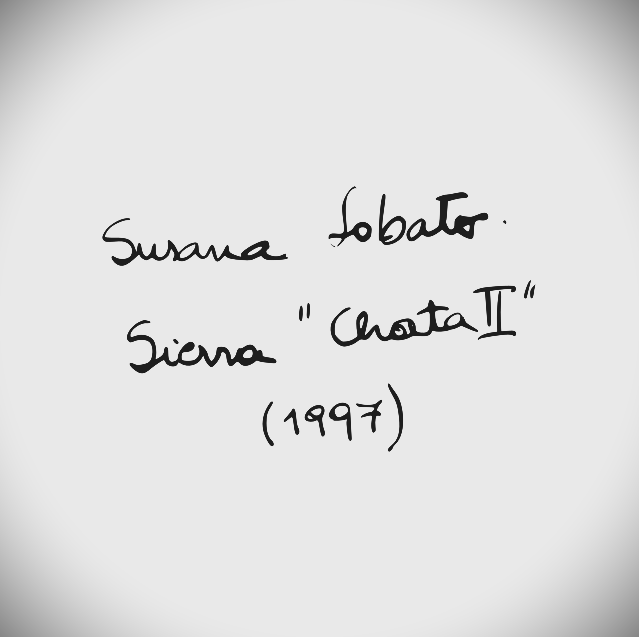 Susana Lobato.
Sierra "Chata II"
(1997)